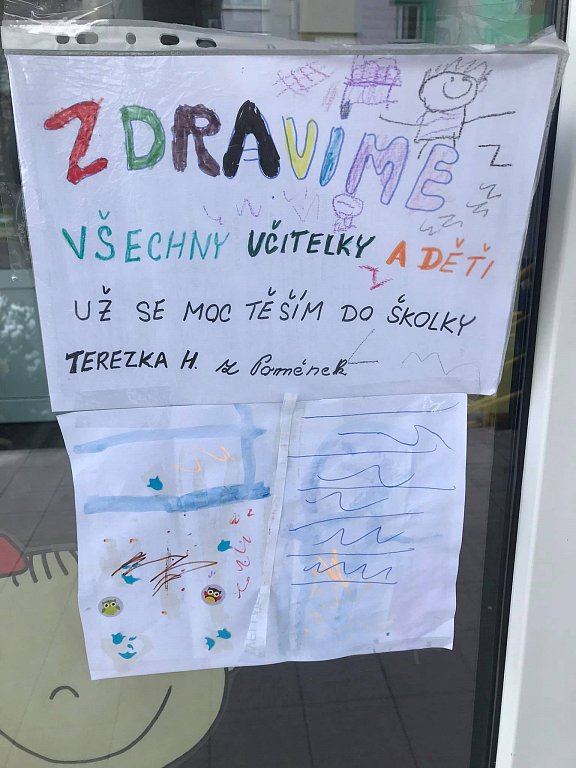 ZDRAVIME
VŠECHNY UČITELKY A DĚTI
UŽ SE MOC TĚŠÍM DO ŠKOLKY
TEREZKA H. z Pomének